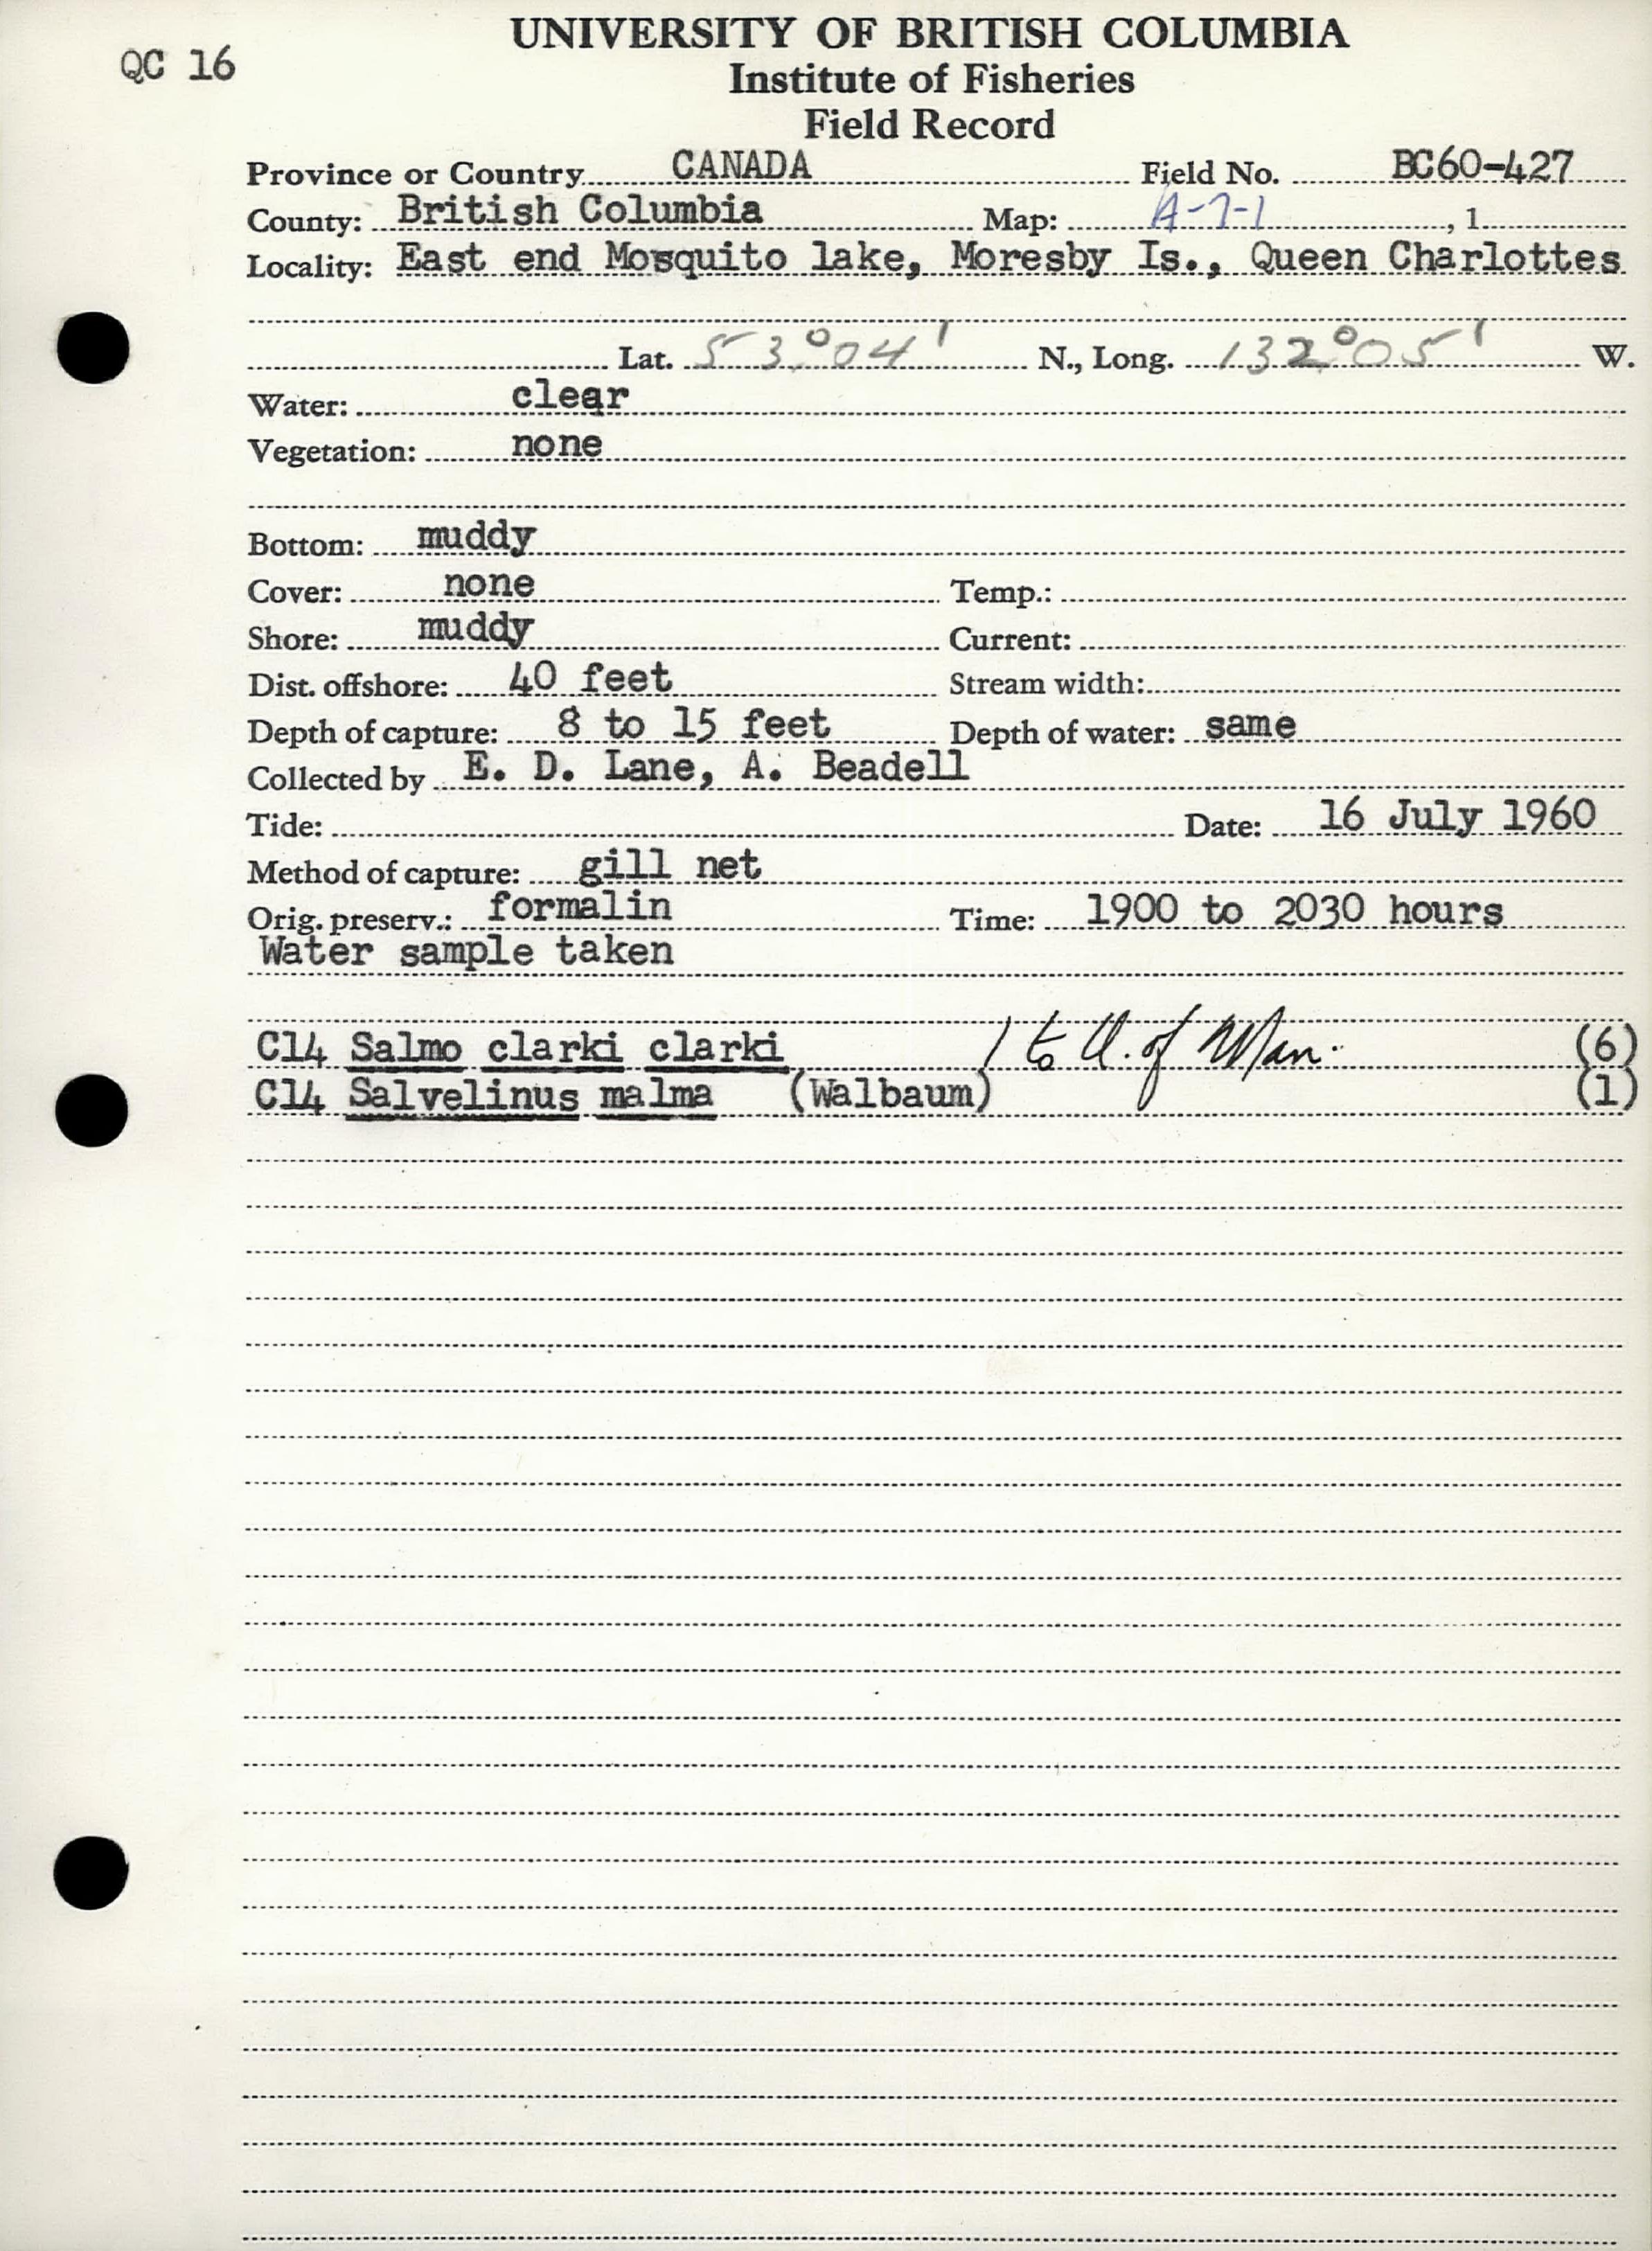 QC 16
UNIVERSITY OF BRITISH COLUMBIA
Institute of Fisheries
Field Record
Province or Country CANADA Field No. BC60-427
County: British Columbia Map: A-7-1, 1
Locality: East end Mosquito lake, Moresby Is., Queen Charlottes
Lat. 53°04' N., Long. 132°05' W.
Water: clear
Vegetation: none
Bottom: muddy
Cover: none Temp.:
Shore: muddy Current:
Dist. offshore: 40 feet Stream width:
Depth of capture: 8 to 15 feet Depth of water: same
Collected by E. D. Lane, A. Beadell
Tide: Date: 16 July 1960
Method of capture: gill net
Orig. preserv.: formalin Time: 1900 to 2030 hours
Water sample taken
C14 Salmo clarki clarki 1 to U. of Man. (6)
C14 Salvelinus malma (Walbaum) (1)